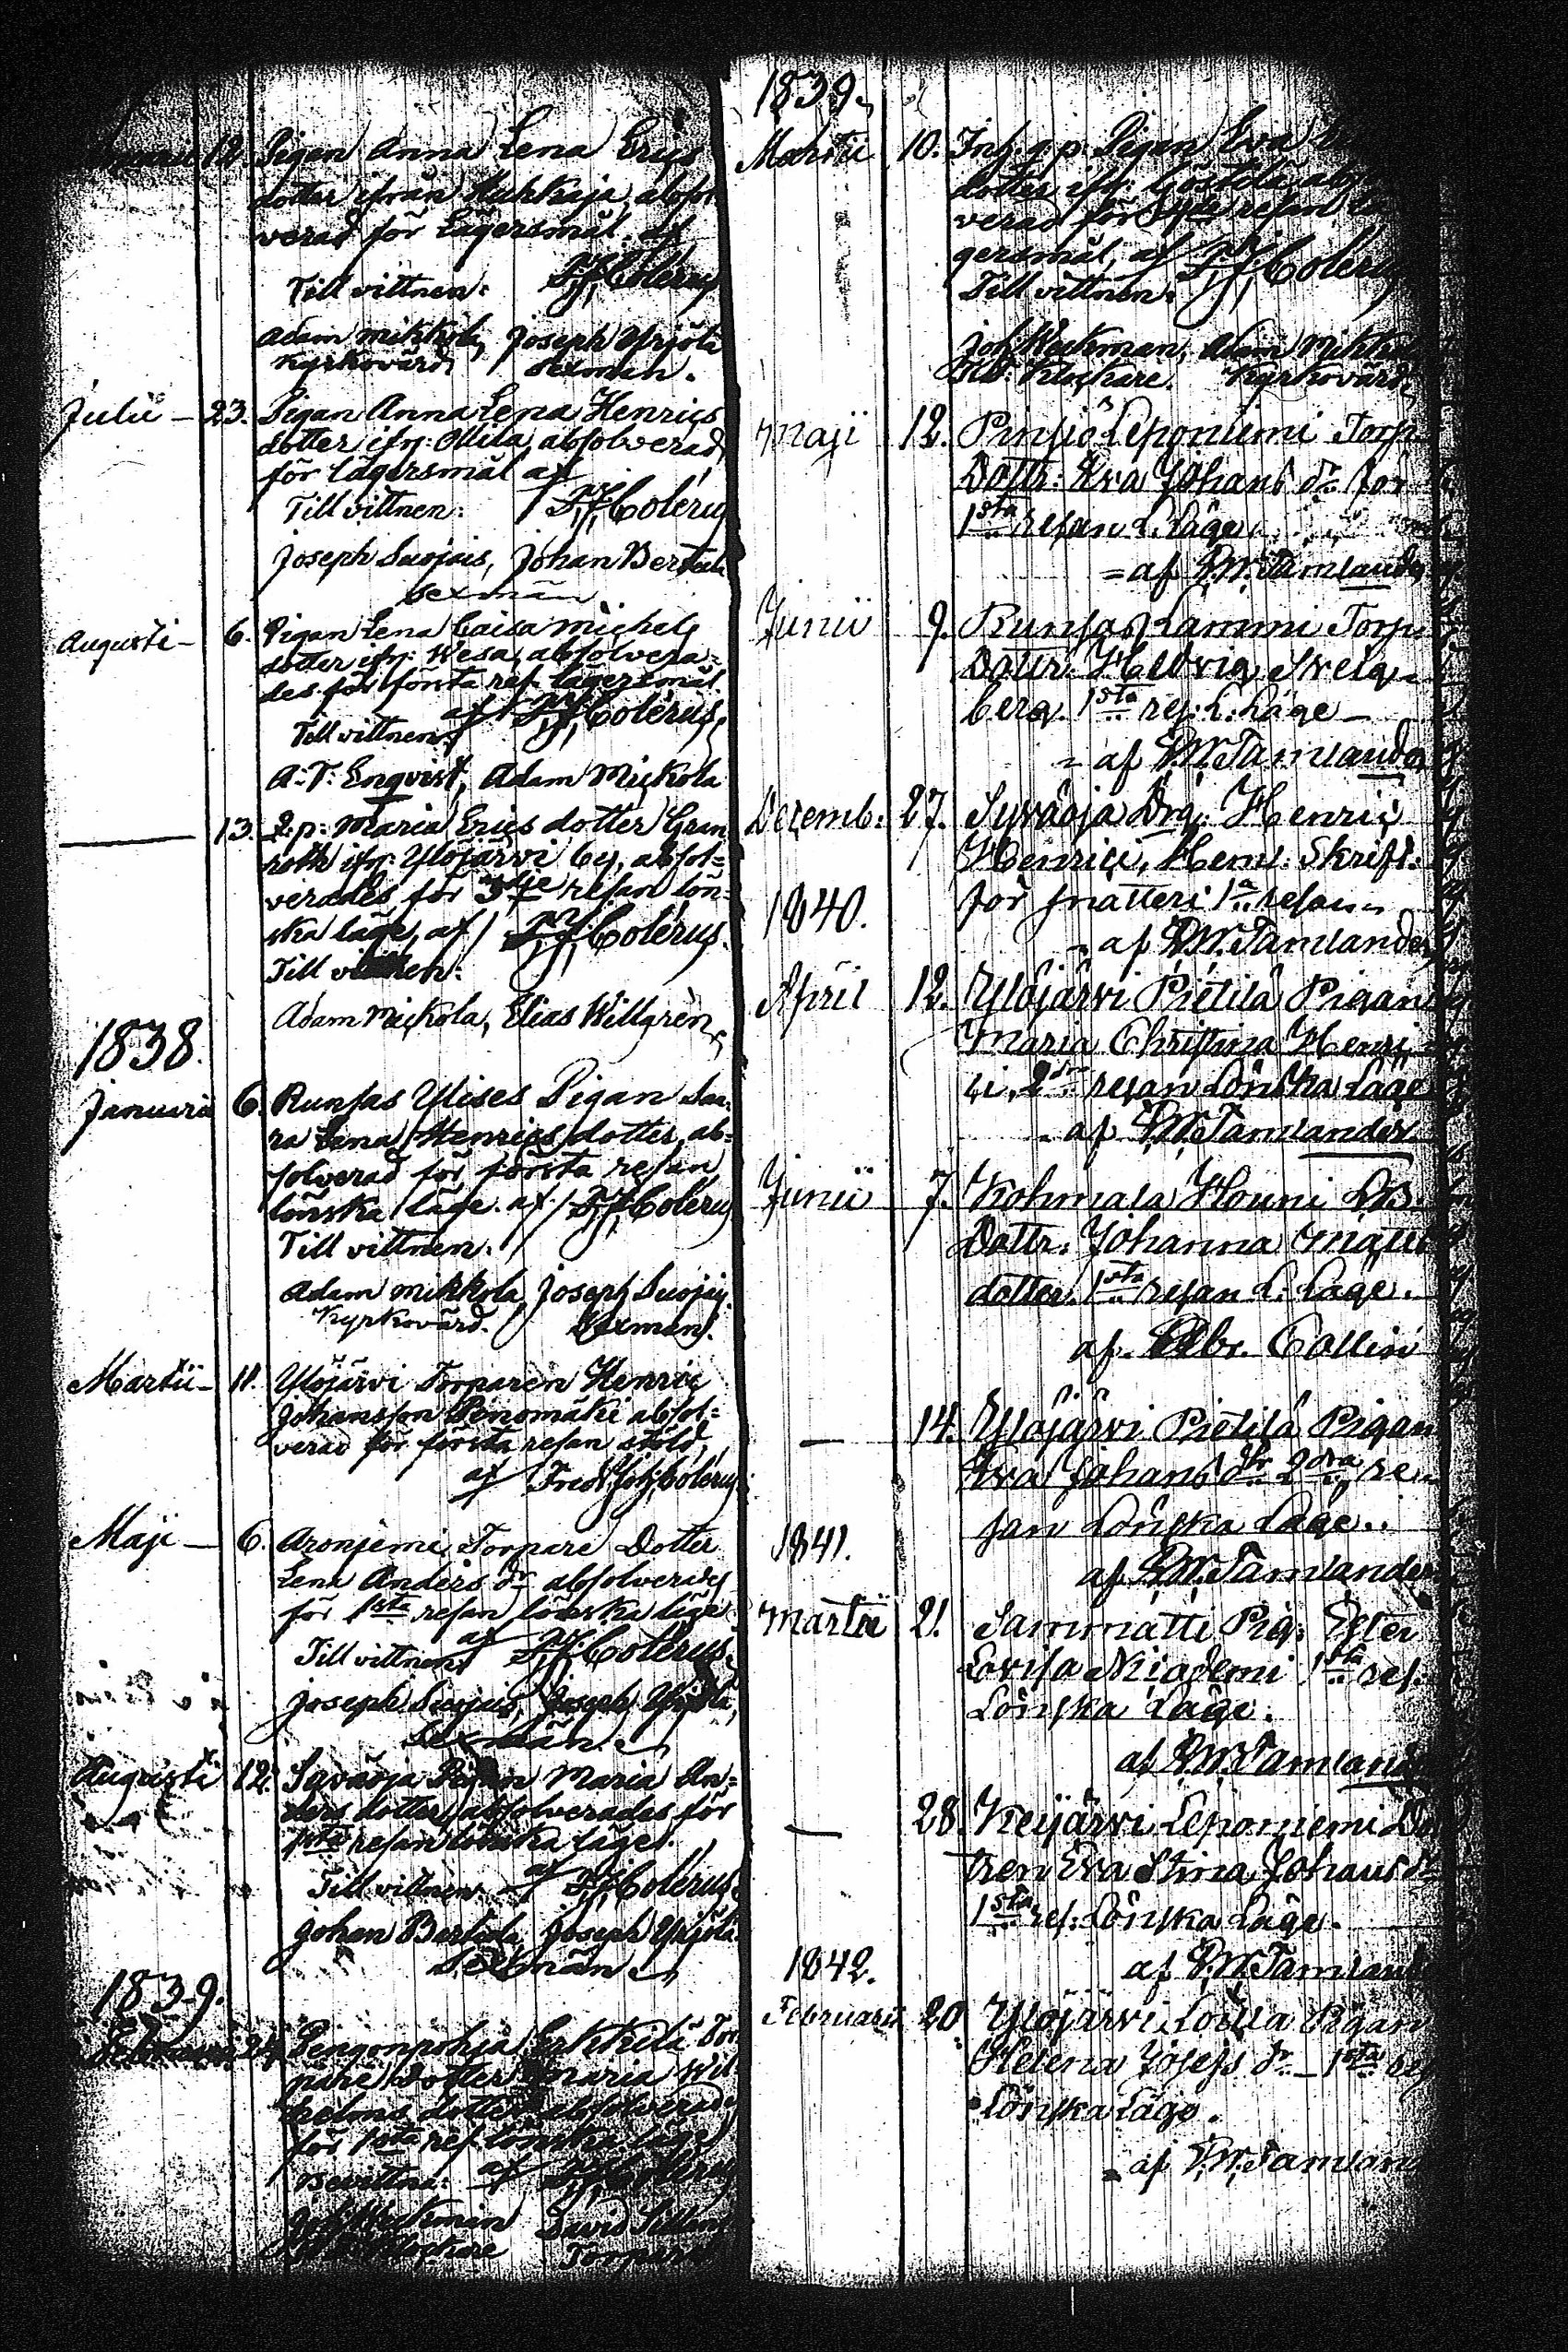 12. Pigan Anna Lena Erics
dotter ifrån Kuhkaja, absol
verad för Lägersmål, af
Till vittnen: F.J. Colérus
Adam Mikkola, Joseph Yrjölä
Kyrkovärd, Sexman.
Julii - 23. Pigan Anna Lena Henrics
dotter ifrn: Ollila, absolverad
för lägersmål af
Till vittnen: F.J. Colérus
Joseph Suojais, Johan Bertula
Sexmän
Augusti - 6. Pigan Lena Caisa Michels
dotter ifrn: Wesa, absolvera=
des för första res. lägersmål
af F.J. Colérus,
Till vittnen
A: T: Enqvist, Adam Mickola
13. Q: p: Maria Erics dotter Gran
roth ifrn: Ylöjärvi by, absol=
verades för 3dje resan lön=
ska läge, af F.J. Colérus.
Till vittnen:
Adam Mickola, Elias Willgrén,
1838.
Januarii 6. Runsas Ylises Pigan Sa=
ra Lena Henrics dotter, ab=
solverad för första resan
lönska läge. af F.J. Colérus
Till vittnen.
Adam Mikkola, Joseph Suojais.
Kyrkovärd. Sexman.
Martii - 11. Ylöjärvi Torparen Henric
Johansson Penomäki absol=
verad för första resan stöld,
af Fred. Joh. Colérus
Maji - 6. Aronjemi Torpare Dotter
Lena Anders dr absolverades
för 1sta resan lönska läge
af F.J. Colérus.
Till vittnen
Joseph Suojais, Joseph Yrjölä,
Sexmän.
Augusti 12. Saväoja Pigan Maria An=
ders dotter, absolverades för
1sta resan lönska läge.
af F.J. Colérus.
Till vittnen
Johan Bertula, Joseph Yrjölä.
Sexmän
1839.
Februarii 24. Pengonpohja Erkkilä Tor
pare Dotter Maria Wil
helms dotter absolverades
för 1sta res. lönska läge
af F.J. Colérus
Bevittna:
Joh. Weckman David
Klockare Torpare
1839.
Martii 10. Inh. q. p. Pigan Eva
dotter ifr: absol
verad för resan
gersmål, af F.J. Colérus
Till vittnen:
Joh. Weckman, Adam Mikkola
Klockare. Kyrkovärd,
Maji 12. Pinsiö Leponiemi Torp.
Dottr: Eva Johans dr för
1sta resan L. Läge
= af P.W. Tamlander
Junii 9. Runsas Lammi Torp.
Dottr: Hedvig Svelg=
berg. 1sta res: L: Läge -
= af P.W. Tamlander
Decemb: 27. Syväoja Drg: Henric
Henrici, Heml: Skrift:
för snatteri 1a resan
= af P.W. Tamlander
1840.
April 12. Ylöjärvi Pietilä Pigan
Maria Christina Henri
ci, 2dra resan Lönska Läge
= af P.W. Tamlander.
Junii 7. Kohmala Houni
Dottr: Johanna Matts
dotter. 1sta resan L: Läge.
af. Abr. Collin
— 14. Ylöjärvi Pietilä Pigan
Eva Johans dtr 2dra re=
san Lönska Läge..
af P.W. Tamlander
1841.
Martii 21. Sammatti Pig: Ester
Lovisa 1sta res.
Lönska Läge.
af P.W. Tamlander
— 28. Keijärvi Leponiemi
tren Eva Stina Johans dr
1sta res: Lönska Läge.
af P.W. Tamlander
1842.
Februarii 20. Ylöjärvi Loilla Pigan
Helena Josefs dr - 1sta res
Lönska Läge.
= af P.W. Tamlander